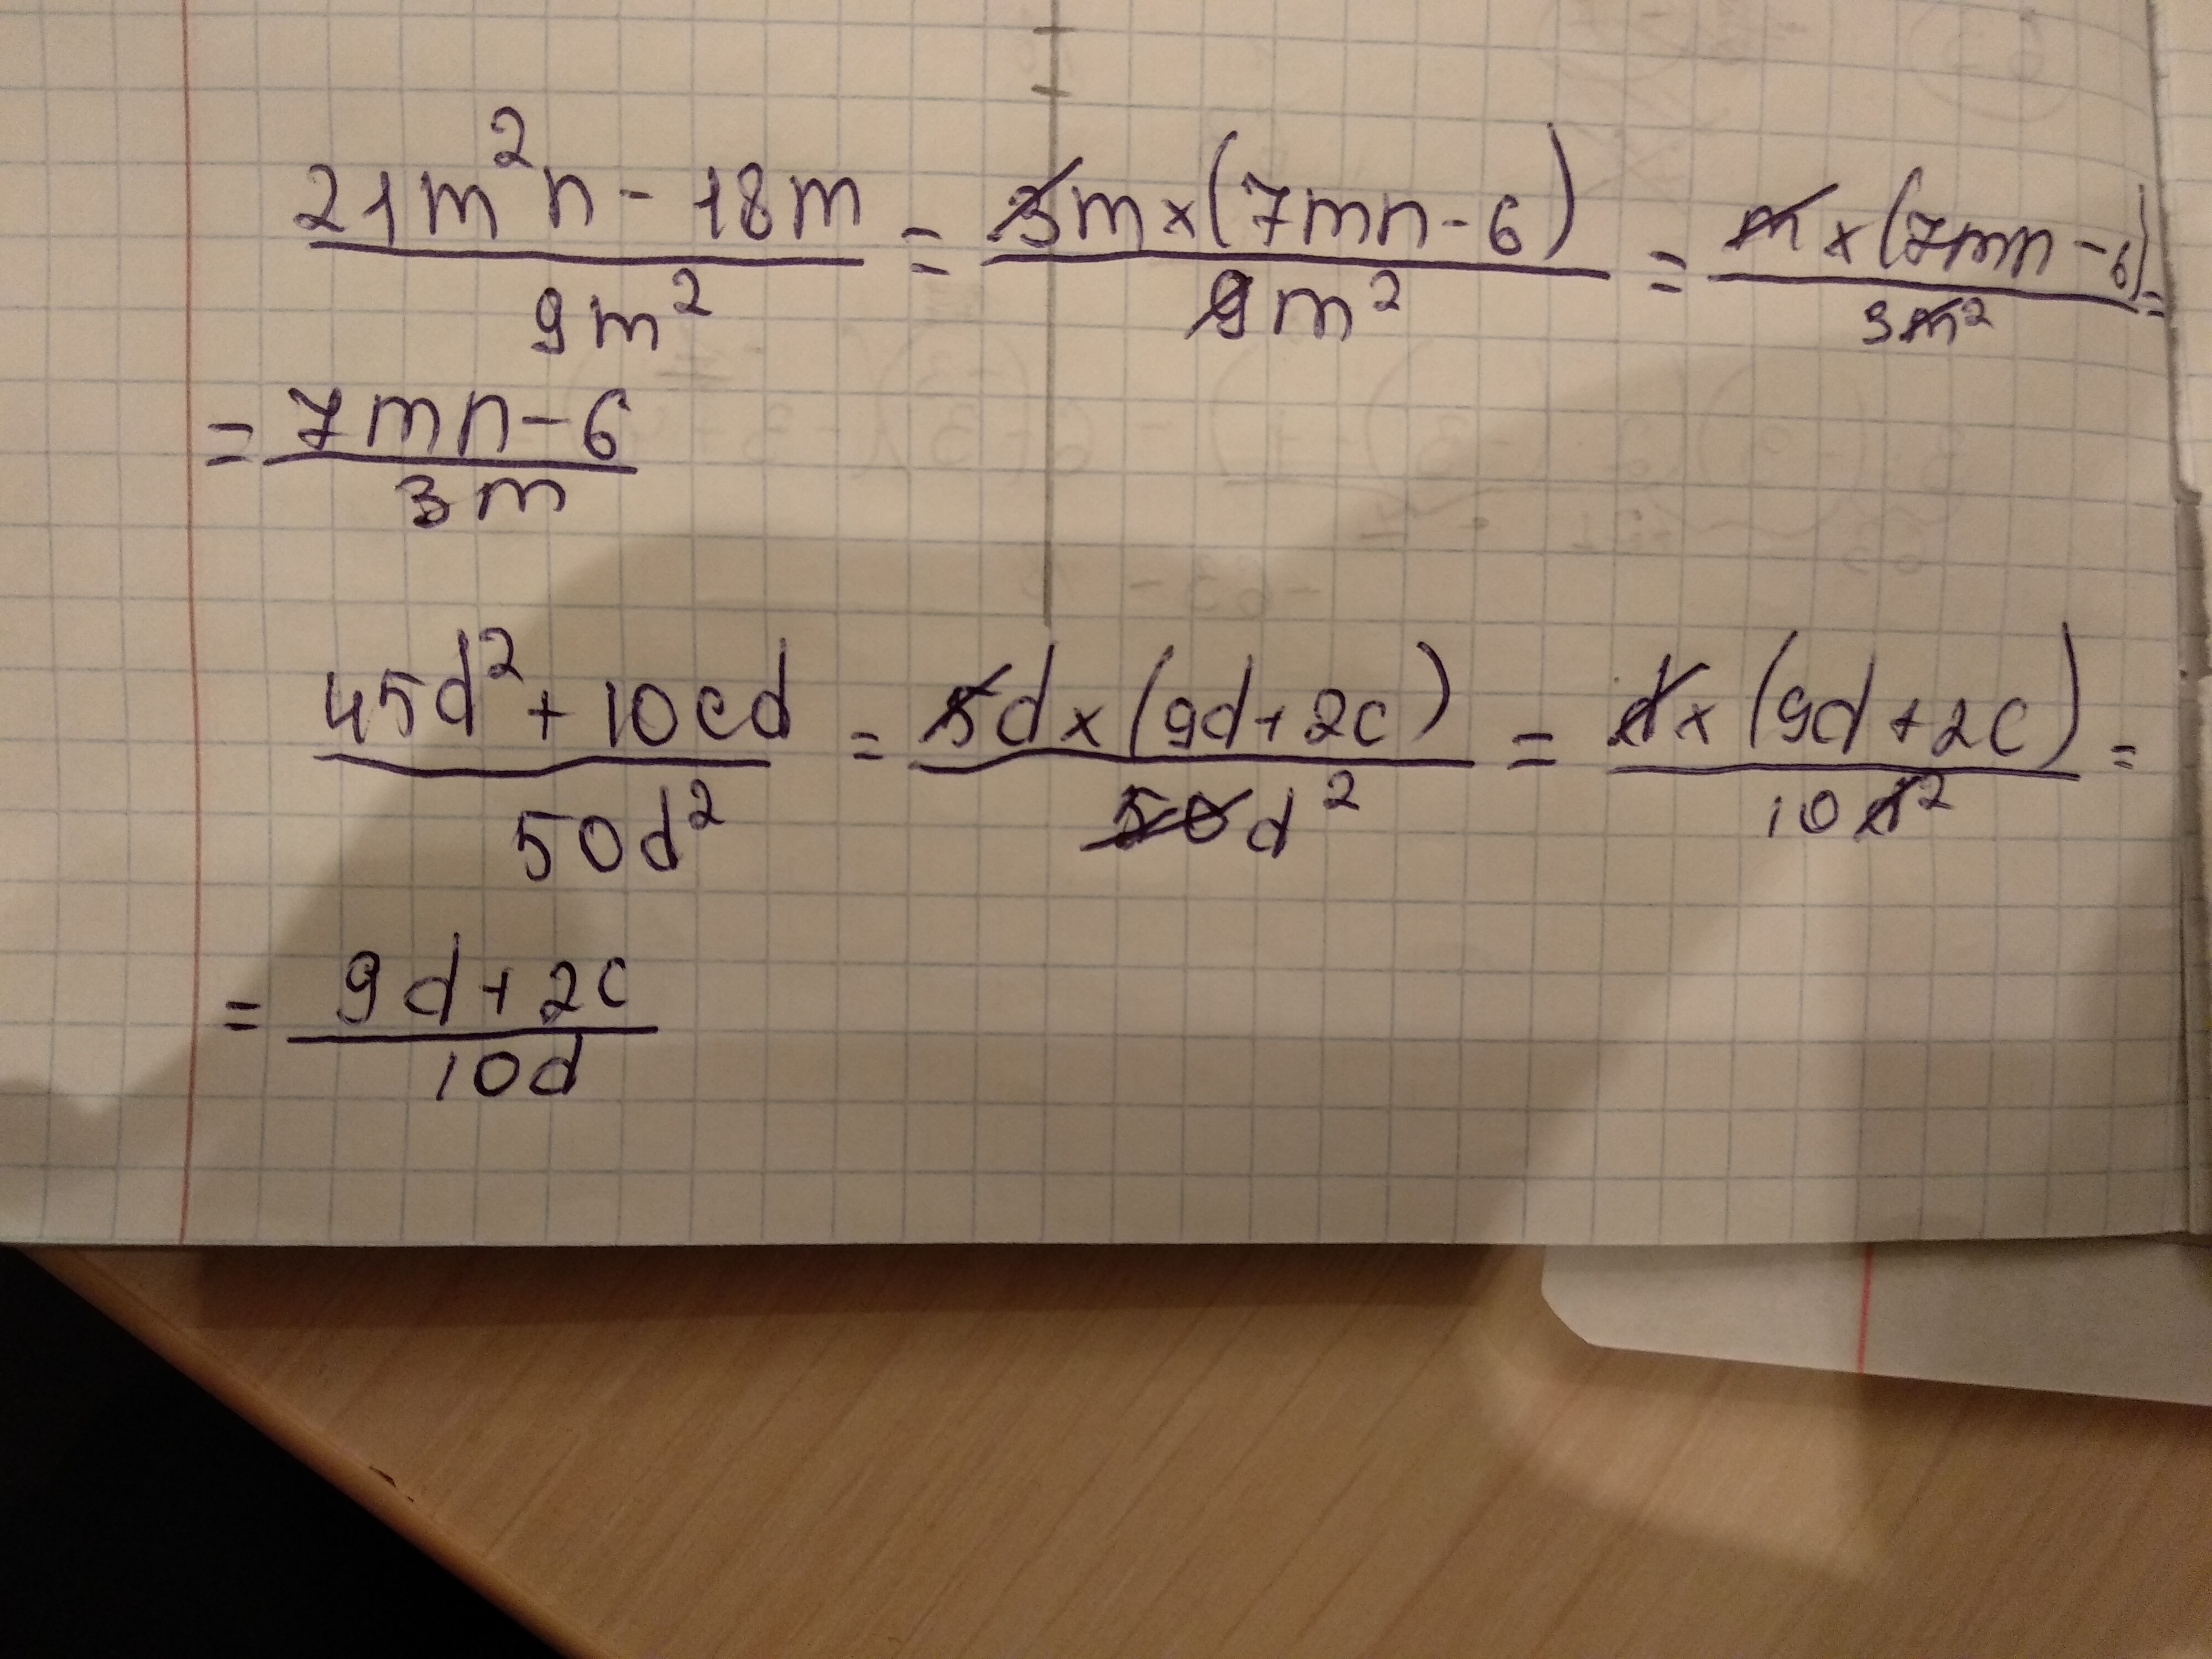 21m²n - 18m / 9m² = 3m × (7mn - 6) / 9m² = m × (7mn - 6) / 3m² =
= 7mn - 6 / 3m
45d² + 10cd / 50d² = 5d × (9d + 2c) / 50d² = d × (9d + 2c) / 10d² =
= 9d + 2c / 10d